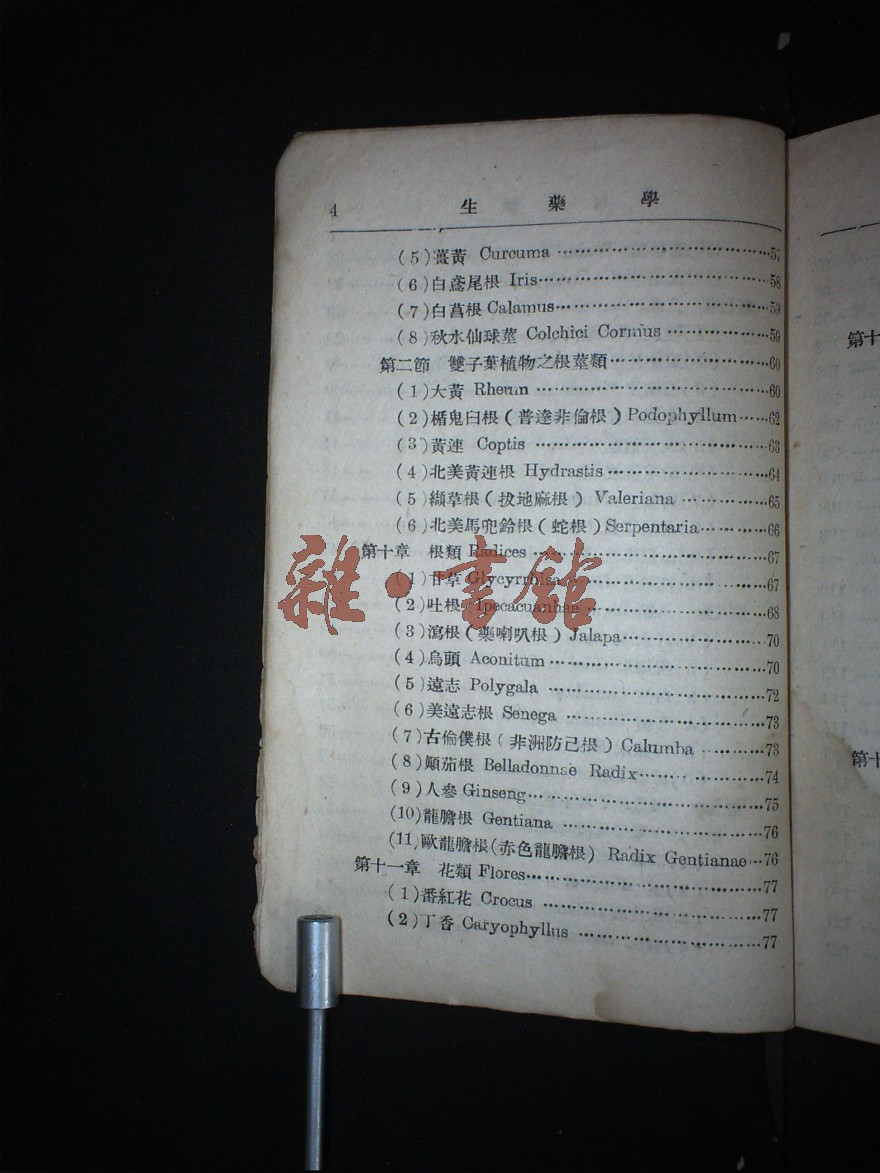 4 生藥學
(5)薑黃 Curcuma ……57
(6)白鳶尾根 Iris……58
(7)白菖根 Calamus……59
(8)秋水仙球莖 Colchici Cormus ……59
第二節 雙子葉植物之根莖類……60
(1)大黃 Rheum ……60
(2)楯鬼臼根(普達非倫根) Podophyllum……62
(3)黃連 Coptis ……63
(4)北美黃連根 Hydrastis……64
(5)纈草根(拔地麻根) Valeriana ……65
(6)北美馬兜鈴根(蛇根) Serpentaria……66
第十章 根類 Radices ……67
(1)甘草 Glycyrrhiza ……67
(2)吐根 Ipecacuanhae ……68
(3)瀉根(藥喇叭根) Jalapa……70
(4)烏頭 Aconitum……70
(5)遠志 Polygala ……72
(6)美遠志根 Senega ……73
(7)古倫僕根(非洲防己根) Calumba ……73
(8)顚茄根 Belladonnae Radix……74
(9)人參 Ginseng……75
(10)龍膽根 Gentiana ……76
(11)歐龍膽根(赤色龍膽根) Radix Gentianae…76
第十一章 花類 Flores……77
(1)番紅花 Crocus ……77
(2)丁香 Caryophyllus ……77
雜·書館
第十
第十